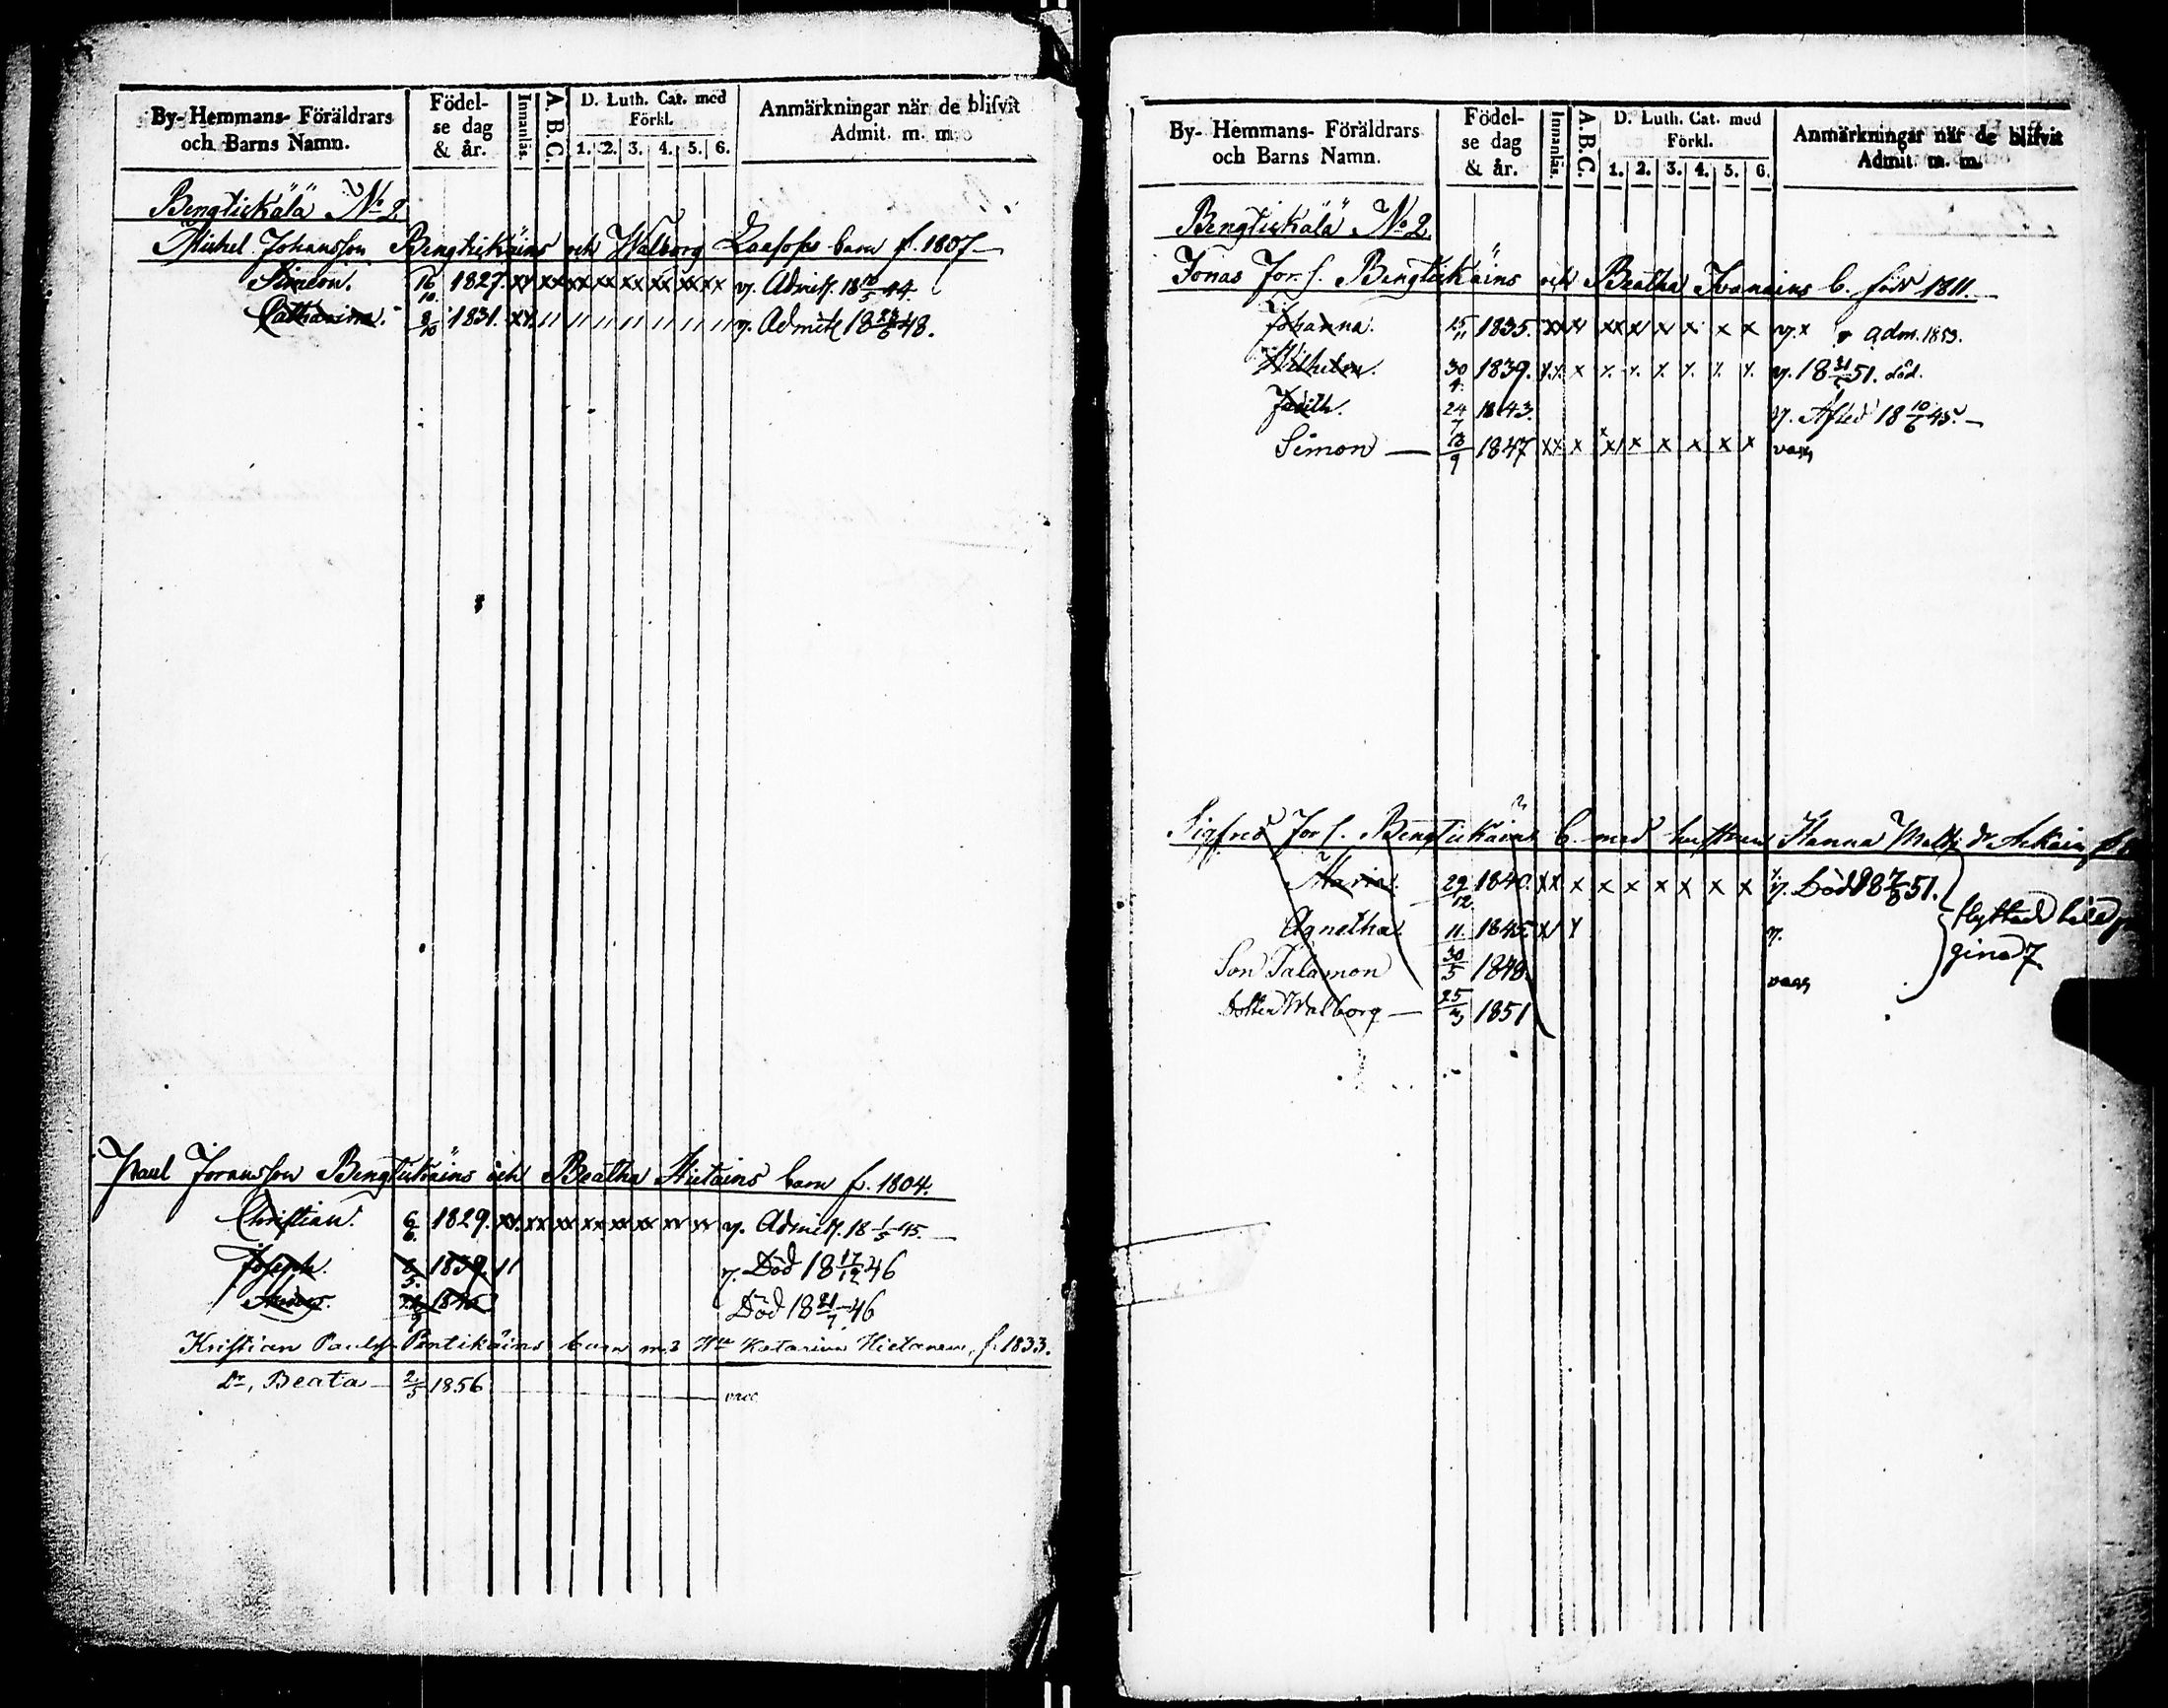 By- Hemmans- Föräldrars
och Barns Namn.
Födel-
se dag
& år.
Innanläs.
A.B.C.
D. Luth. Cat. med
Förkl.
1. 2. 3. 4. 5. 6.
Anmärkningar när de blifvit
Admit. m. m.
Bengtickälä No 2.
Michel Johansson Bengtickäins och Walborg barn f. 1807
Simeon. 16/10 1827. xx xx xx xx xx xx xx xx v. Admitt. 18 10/5 44.
Catharina. 2/10 1831. xx 11 11 11 11 11 11 11 v. Admitt 18 23/6 48.
Paul Joransson Bengtickäins och Beatha Hietains barn f. 1804.
Christian. 6/6. 1829. xx xx xx xx xx xx xx xx v. Admitt. 18 1/5 45.
Joseph. 1839. 11 v. Död 18 17/12 46
Död 18 21/7 46
Kristian Paulss. Pentikäins barn m. H Katarina Hietanen, f. 1833.
Dr, Beata 2/5 1856 vacc
By- Hemmans- Föräldrars
och Barns Namn.
Födel-
se dag
& år.
Innanläs.
A.B.C.
D. Luth. Cat. med
Förkl.
1. 2. 3. 4. 5. 6.
Anmärkningar när de blifvit
Admit. m. m.
Bengtickälä No 2.
Jonas Jor. s. Bengtickäins och Beatha Ivanains b. född 1811.
Johanna. 15/11 1835. xx x xx x x x x x v. x adm. 1853.
Wilhelm. 30/4. 1839. x x x x x x x x v. 18 51. död.
Judith. 24/7 1843. v. Afled 18 10/6 45.
Simon 13/9 1847 xx x x x x x x x vacc
Sigfred Jor s. Bengtickäins b. med hustrun Hanna
Maria. 29/12 1840. xx x x x x x x x v. Död 18 7/8 51.
Agnetha. 11. 1845 x x v.
flyttade till
Son Salamon 30/5 1848. vacc
gina 7
dotter Walborg 25/3 1851